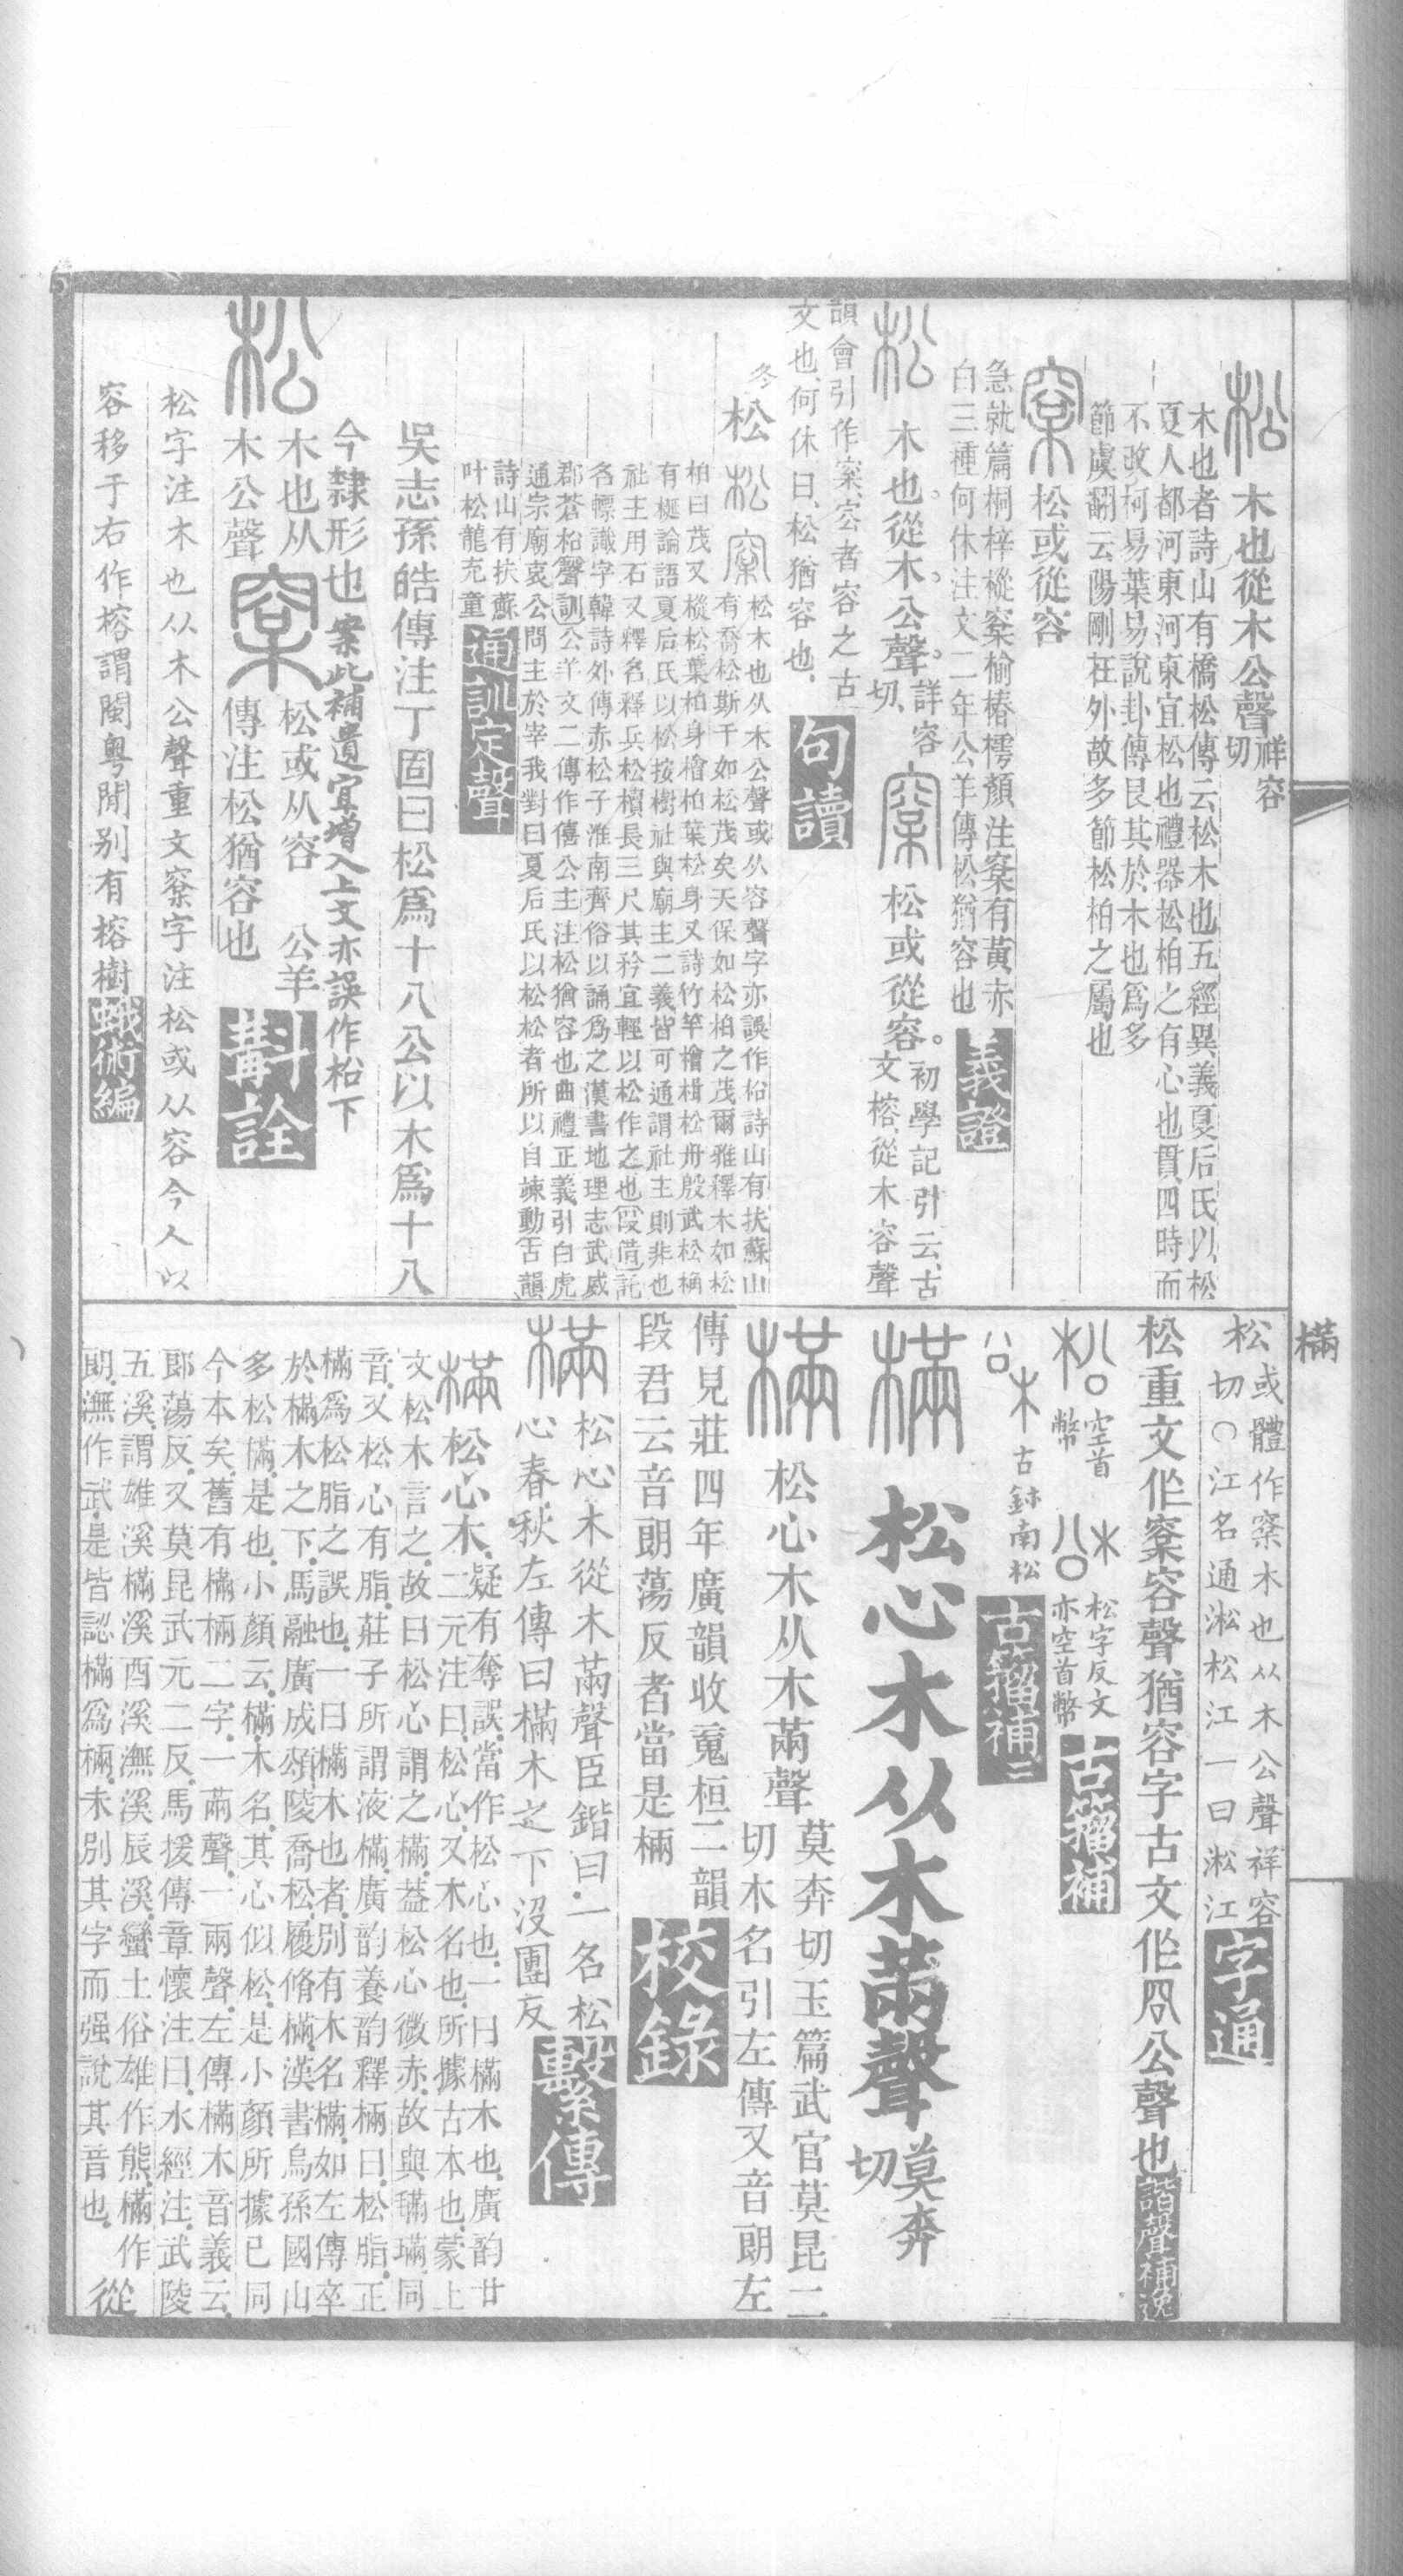 松 木也從木公聲 祥容切
木也者詩山有橋松傳云松木也五經異義夏后氏以松
夏人都河東河東宜松也禮器松柏之有心也貫四時而
不改柯易葉易說卦傳艮其於木也爲多
節虞翻云陽剛在外故多節松柏之屬也
㮤 松或從容
急就篇桐梓樅㮤榆椿樗顏注㮤有黃赤
白三種何休注文二年公羊傳松猶容也 義證
松 木也。從木。公聲。詳容切、㮤 松或從容。初學記引云、古文榕、從木容聲
韻會引作㮤、㝐者容之古
文也、何休曰、松猶容也、 句讀
冬 松 松 㮤 松木也从木公聲或从容聲字亦誤作枀詩山有扶蘇山
有喬松斯干如松茂矣天保如松柏之茂爾雅釋木如松
柏曰茂又樅松葉柏身檜柏葉松身又詩竹竿檜楫松舟殷武松桷
有梴論語夏后氏以松按樹社與廟主二義皆可通謂社主則非也
社主用石又釋名釋兵松櫝長三尺其矜宜輕以松作之也 叚借 託
名幖識字韓詩外傳赤松子淮南齊俗以誦爲之漢書地理志武威
郡蒼松 聲訓 公羊文二傳作僖公主注松猶容也曲禮正義引白虎
通宗廟哀公問主於宰我對曰夏后氏以松松者所以自竦動 古韻
詩山有扶蘇
叶松龍充童 通訓定聲
吳志孫皓傳注丁固曰松爲十八公以木爲十八
今隸形也案此補遺宜增入上文亦誤作枀下
松 木也从木公聲 㮤 松或从容 公羊傳注松猶容也 斠詮
松字注木也从木公聲重文㮤字注松或从容今人以
容移于右作榕謂閩粵閒别有榕樹 蛾術編
松 或體作㮤木也从木公聲祥容切○江名通淞松江一曰淞江 字通
松重文作㮤容聲猶容字古文作㕣公聲也 諧聲補逸
空首幣 松字反文亦空首幣 古籀補
古鉥南松 古籀補二
樠
樠 松心木从木㒼聲 莫奔切
樠 松心木从木㒼聲 莫奔切玉篇武官莫昆二
切木名引左傳又音朗左
傳見莊四年廣韻收䰟桓二韻
段君云音朗蕩反者當是㭃 校錄
樠 松心木從木㒼聲臣鍇曰.一名松
心春.秋左傳曰樠木之下沒團反 繫傳
樠 松心木. 疑有奪誤.當作松心也.一曰樠木也.廣韵廿
二元注曰.松心.又木名也.所據古本也.蒙上
文松木言之.故曰松心謂之樠.葢松心微赤.故與㻴璊同
音.又松心有脂.莊子所謂液樠.廣韵養韵釋㭃曰.松脂.正
樠爲松脂之誤也.一曰樠木也者.別有木名樠.如左傳卒
於樠木之下.馬融廣成頌陵喬松.履脩樠.漢書烏孫國山
多松樠.是也.小顏云.樠木名.其心似松.是小顏所據已同
今本矣.舊有樠㭃二字.一㒼聲.一兩聲.左傳樠木音義云.
郎蕩反.又莫昆武元二反.馬援傳章懷注曰.水經注.武陵
五溪.謂雄溪樠溪酉溪潕溪辰溪.蠻土俗雄作熊.樠作
朗.潕作武.是皆認樠爲㭃.未別其字而强說其音也. 從